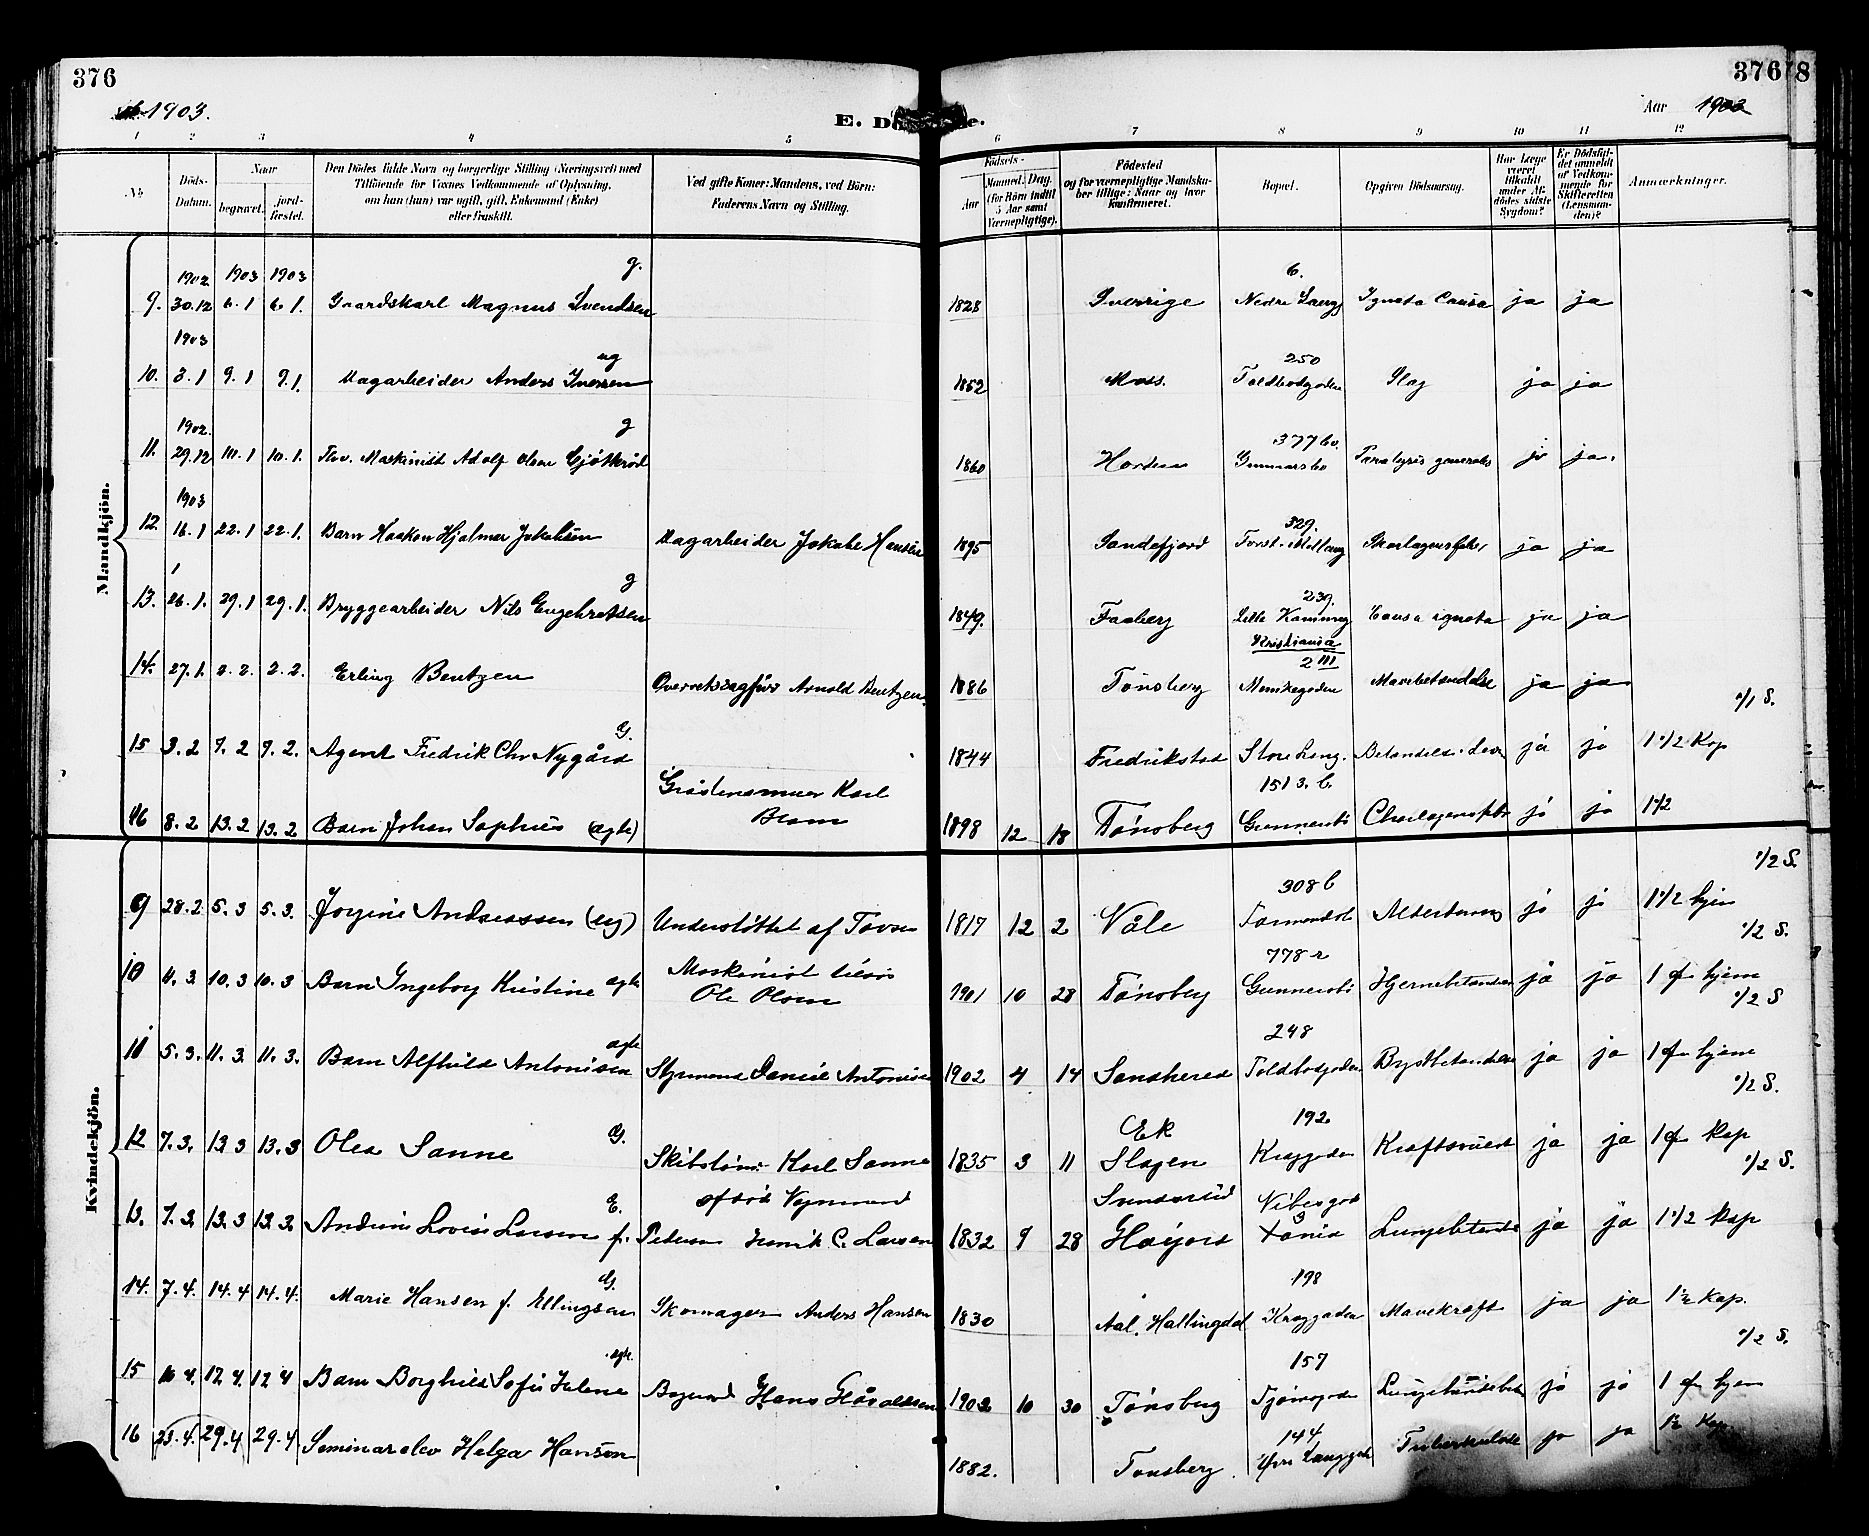 376
376
8
1903.
E. Dö
e.
Aar 1903
1 2 3 4 5 6 7 8 9 10 11 12
No
Döds-Datum.
Naar
begravet.
jord-fæstet.
Den Dödes fulde Navn og borgerlige Stilling (Næringsvei) med
Tilföiende for Voxnes Vedkommende af Oplysning,
om han (hun) var ugift, gift, Enkemand (Enke)
eller fraskilt.
Ved gifte Koner: Mandens, ved Börn:
Faderens Navn og Stilling.
Födsels-
Aar
Maaned. Dag.
(for Börn indtil
5 Aar samt
Værnepligtige).
Födested
og for værnepligtige Mandska-
ber tillige: Naar og hvor
konfirmeret.
Bopæl.
Opgiven Dödsaarsag.
Har Læge
været
tilkaldt
under Af-
dødes sidste
Sygdom?
Er Dödsfal-
det anmeldt
af Vedkom-
mende for
Skifteretten
(Lensman-
den)?
Anmærkninger.
Mandkjön.
9. 1902 30.12 1903 6.1 1903 6.1. Gaardskarl Magnus Svendsen g. 1828 Sverrige 6. Nedre Langg Ignota Causa ja ja
10. 1903 3.1 9.1 9.1. Dagarbeider Anders Iversen ug 1852 Moss. 250 Toldbodgaden Slag ja ja
11. 1902. 29.12 10.1 10.1. Maskinist Adolf Olsen g 1860 377 Gunnarsbo Paralysis generalis ja ja.
12. 1903 16.1 22.1 22.1. Barn Haakon Hjalmar Jakobsen Dagarbeider Jakob Hansen 1895 Sandefjord 329. Skarlagensfeber ja ja
13. 26.1. 29.1 29.1. Bryggearbeider Nils Engebretsen g 1849. Faaberg 239. Lille Causa ignota ja ja
14. 27.1. 2.2. 2.2. Erling Bentzen Overretssagfører Arnold Bentzen. 1886 Tønsberg Kristiania 2 III Munkegaden Mavebetændelse ja ja
15 3.2 9.2 9.2. Agent Fredrik Chr Nygård G. 1844 Fredrikstad Store Lang. Betændelse i Lever ja ja 1 1/2 Kap 0/1 S.
16 8.2 13.2 13.2 Barn Johan Sophus (ægte) Karl 1898 12 18 Tønsberg 1513. b. Gunnersbø ja ja 1 1/2
Kvindekjön.
9 28.2 5.3 5.3. Jorgine Andreassen (ug) Understøttet af Fattigv 1817 12 2 Våle 308 b Farmandst ja ja 1 1/2 hjem 0/2 S.
10 4.3 10.3 10.3 Barn Ingeborg Kristine ægte Maskinist tilsjøs Ole Olsen 1901 10 28 Tønsberg 778 Gunnersbø Hjernebetændelse ja ja 1 hjem 0/2 S.
11 5.3. 11.3. 11.3. Barn Alfhild Antonisen ægte Styrmand Daniel Antonisen 1902 4 14 Sandherred 248 Toldbodgaden Brystbetændelse ja ja 1 hjem 0/2 S
12 7.3. 13.3 13.3 Olea Sanne G. Karl Sanne 1835 3 11 Ek Slagen 192 Kraggaden Kraftsvind ja ja 1 Kap 0/2 S.
13. 7.3. 13.3 13.3. Andrine Lovise Larsen f. Pedersen E. Henrik C. Larsen 1832 9 28 Lungebetændelse ja ja 1 1/2 Kap 0/2 S.
14. 7.4. 14.4 14.4. Marie Hansen f. Ellingsen G. Skomager Anders Hansen 1830 Aal. Hallingdal 198 Kraggaden Mavekræft ja ja 1 1/2 Kap.
15 10.4. 17.4. 17.4 Barn Borghild Sofie Julene ægte. Bøgmand Hans 1902 10 30 Tønsberg 157 Tjømegaden Lungebetændelse ja ja 1 hjem 0/2 S.
16 25.4. 29.4 29.4 Seminarelev Helga Hanson 1882. Tønsberg. 144 Øvre Langgade Tuberkulose ja ja 1 1/2 Kap.